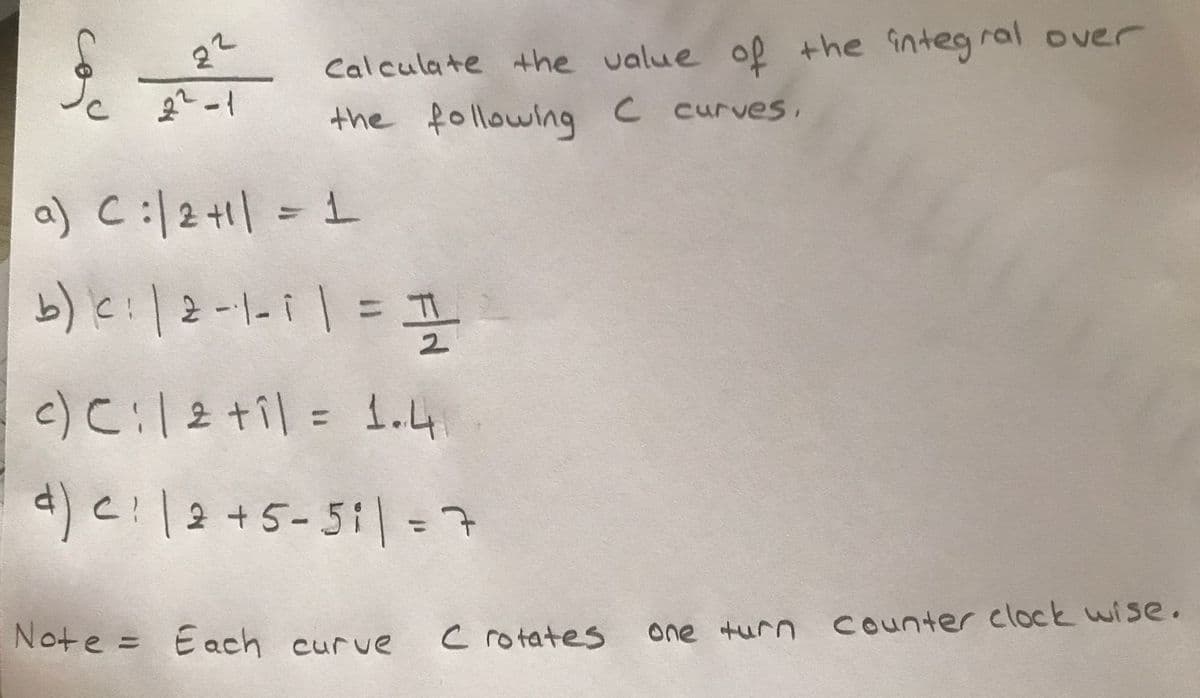 ∮_C z²/(z²-1) Calculate the value of the integral over
the following C curves.
a) C:|z+1| = 1
b) C:|z-1-i| = π/2
c) C:|z+i| = 1.4
d) C:|z+5-5i| = 7
Note = Each curve C rotates one turn counter clock wise.